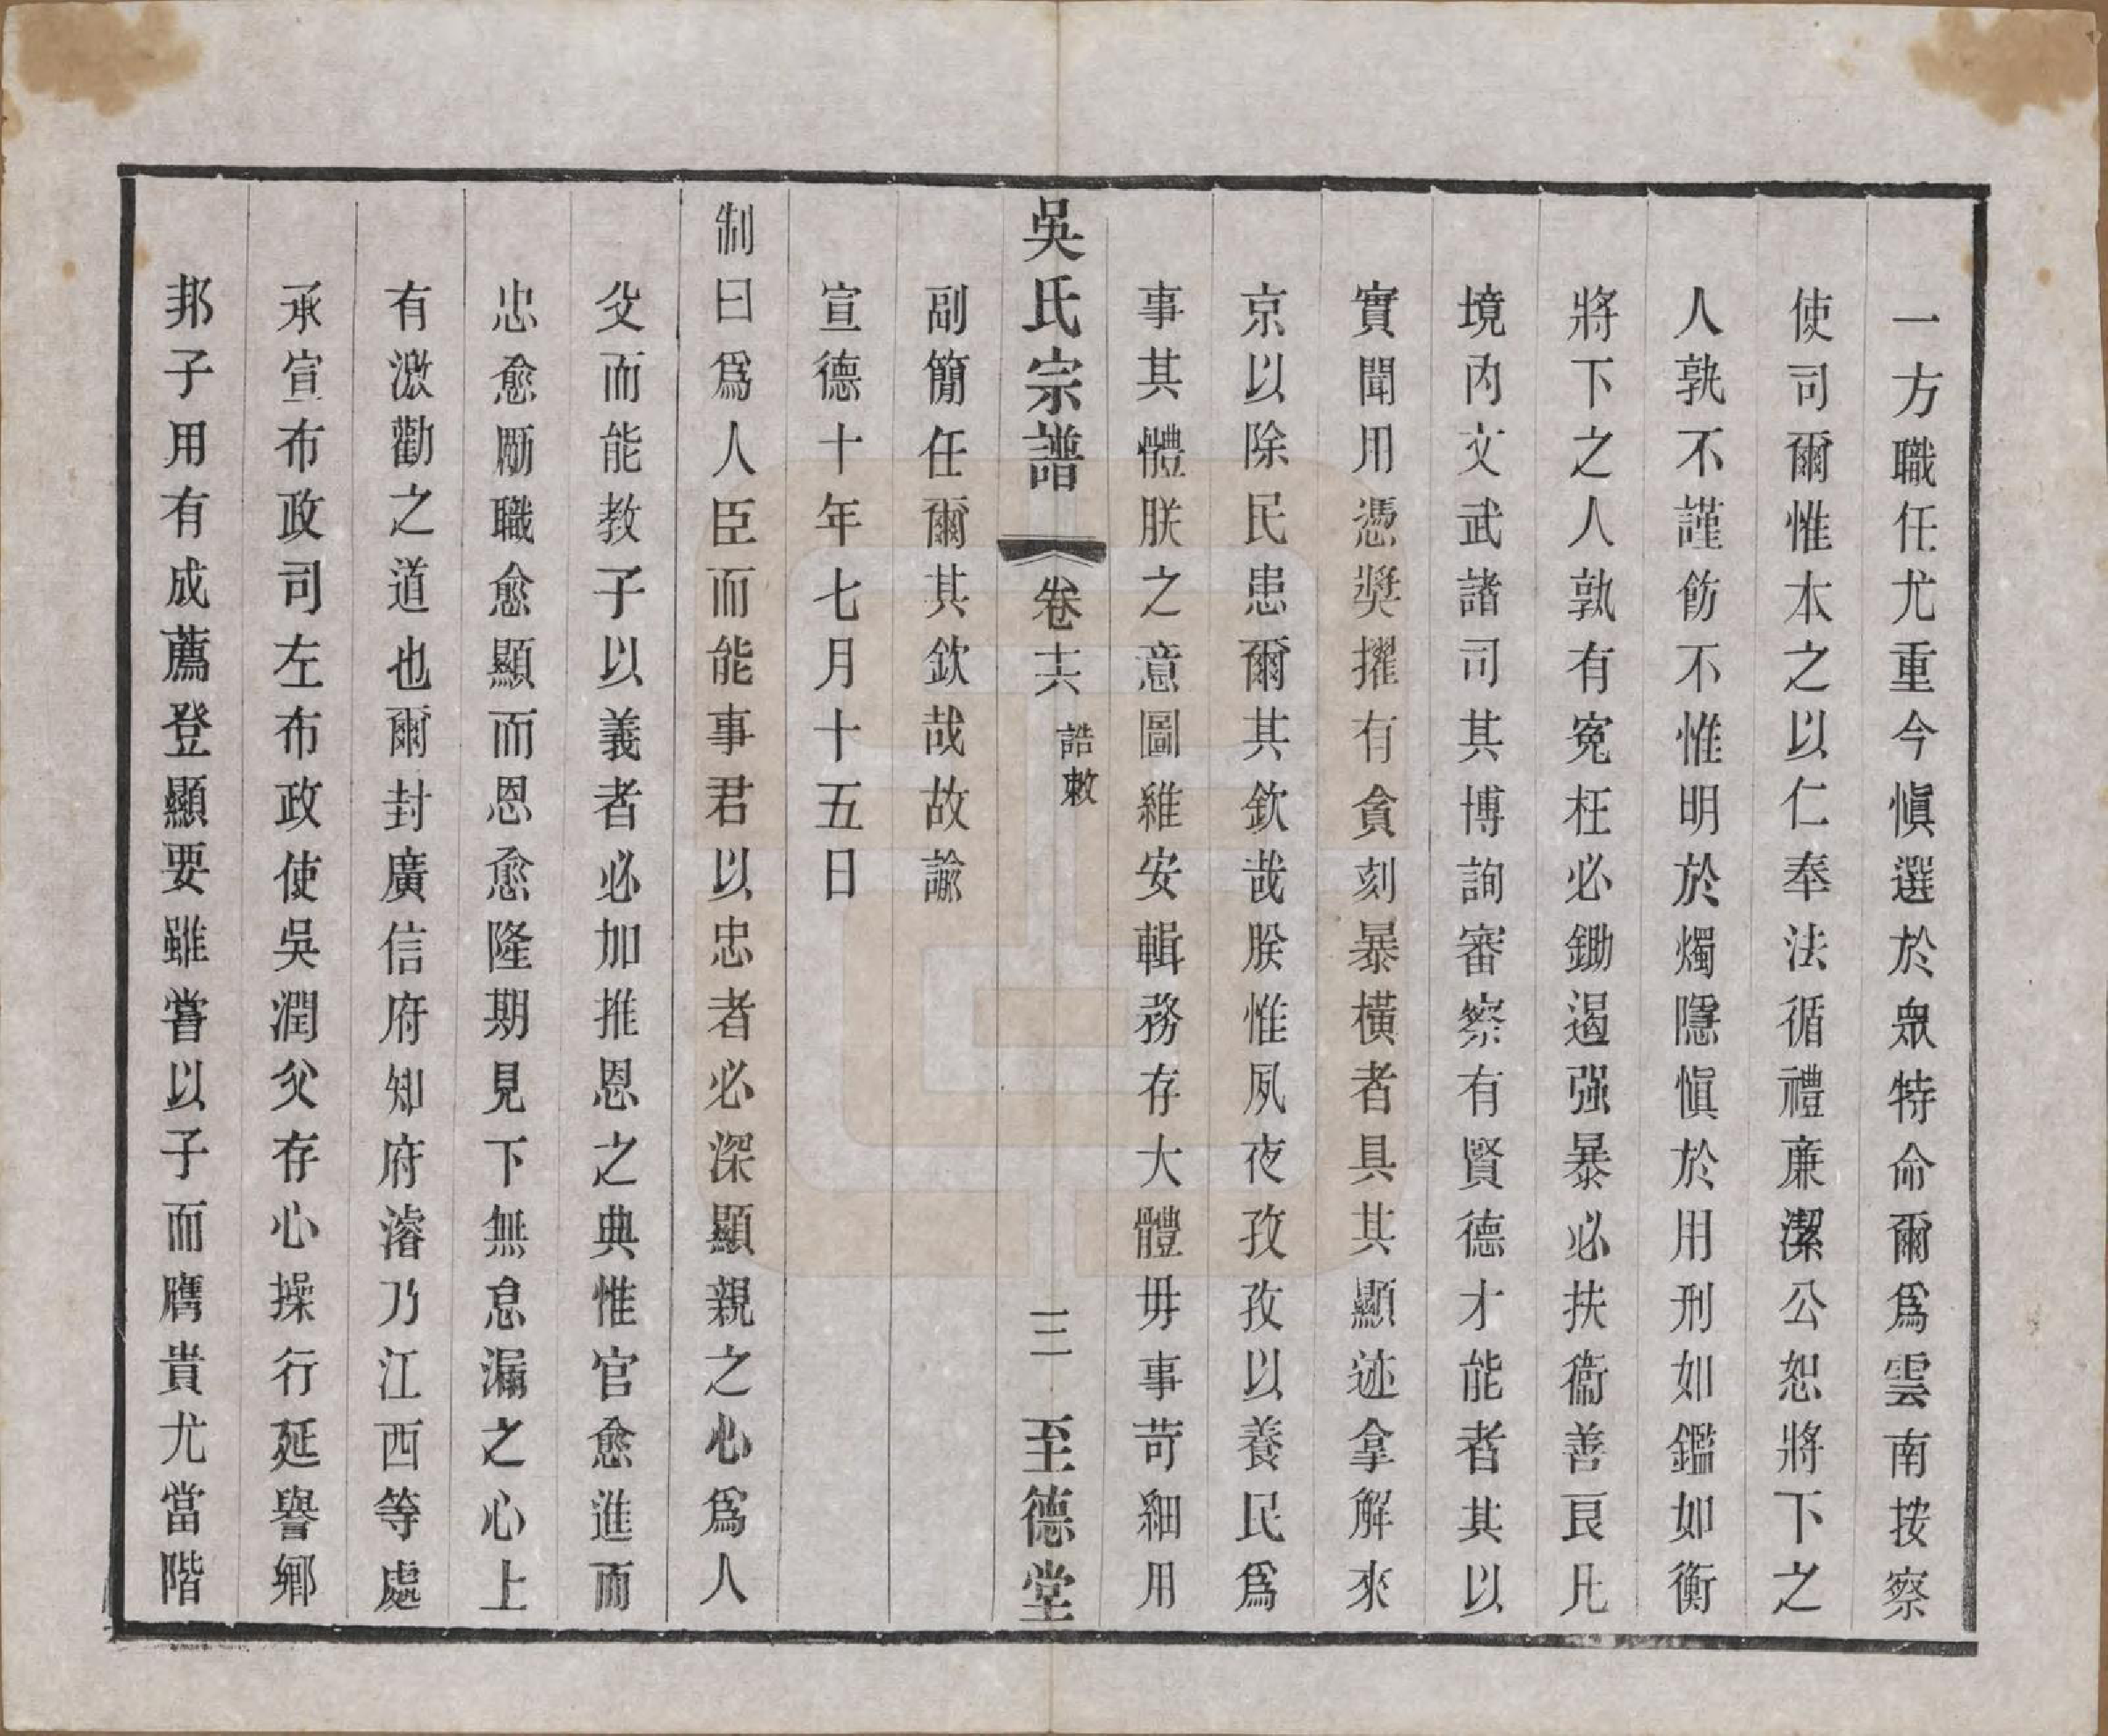 一方職任尤重今愼選於衆特命爾爲雲南按察
使司爾惟本之以仁奉法循禮廉潔公恕將下之
人孰不謹飭不惟明於燭隱愼於用刑如鑑如衡
將下之人孰有寃枉必鋤遏强暴必扶衞善良凡
境内文武諸司其博詢審察有賢德才能者其以
實聞用憑奬擢有貪刻暴橫者具其顯迹拿解來
京以除民患爾其欽哉朕惟夙夜孜孜以養民爲
事其體朕之意圖維安輯務存大體毋事苛細用
吳氏宗譜 卷十六 誥敕 三 至德堂
副簡任爾其欽哉故諭
宣德十年七月十五日
制曰爲人臣而能事君以忠者必深顯親之心爲人
父而能教子以義者必加推恩之典惟官愈進而
忠愈勵職愈顯而恩愈隆期見下無怠漏之心上
有激勸之道也爾封廣信府知府濬乃江西等處
承宣布政司左布政使吳潤父存心操行延譽鄉
邦子用有成薦登顯要雖嘗以子而膺貴尤當階